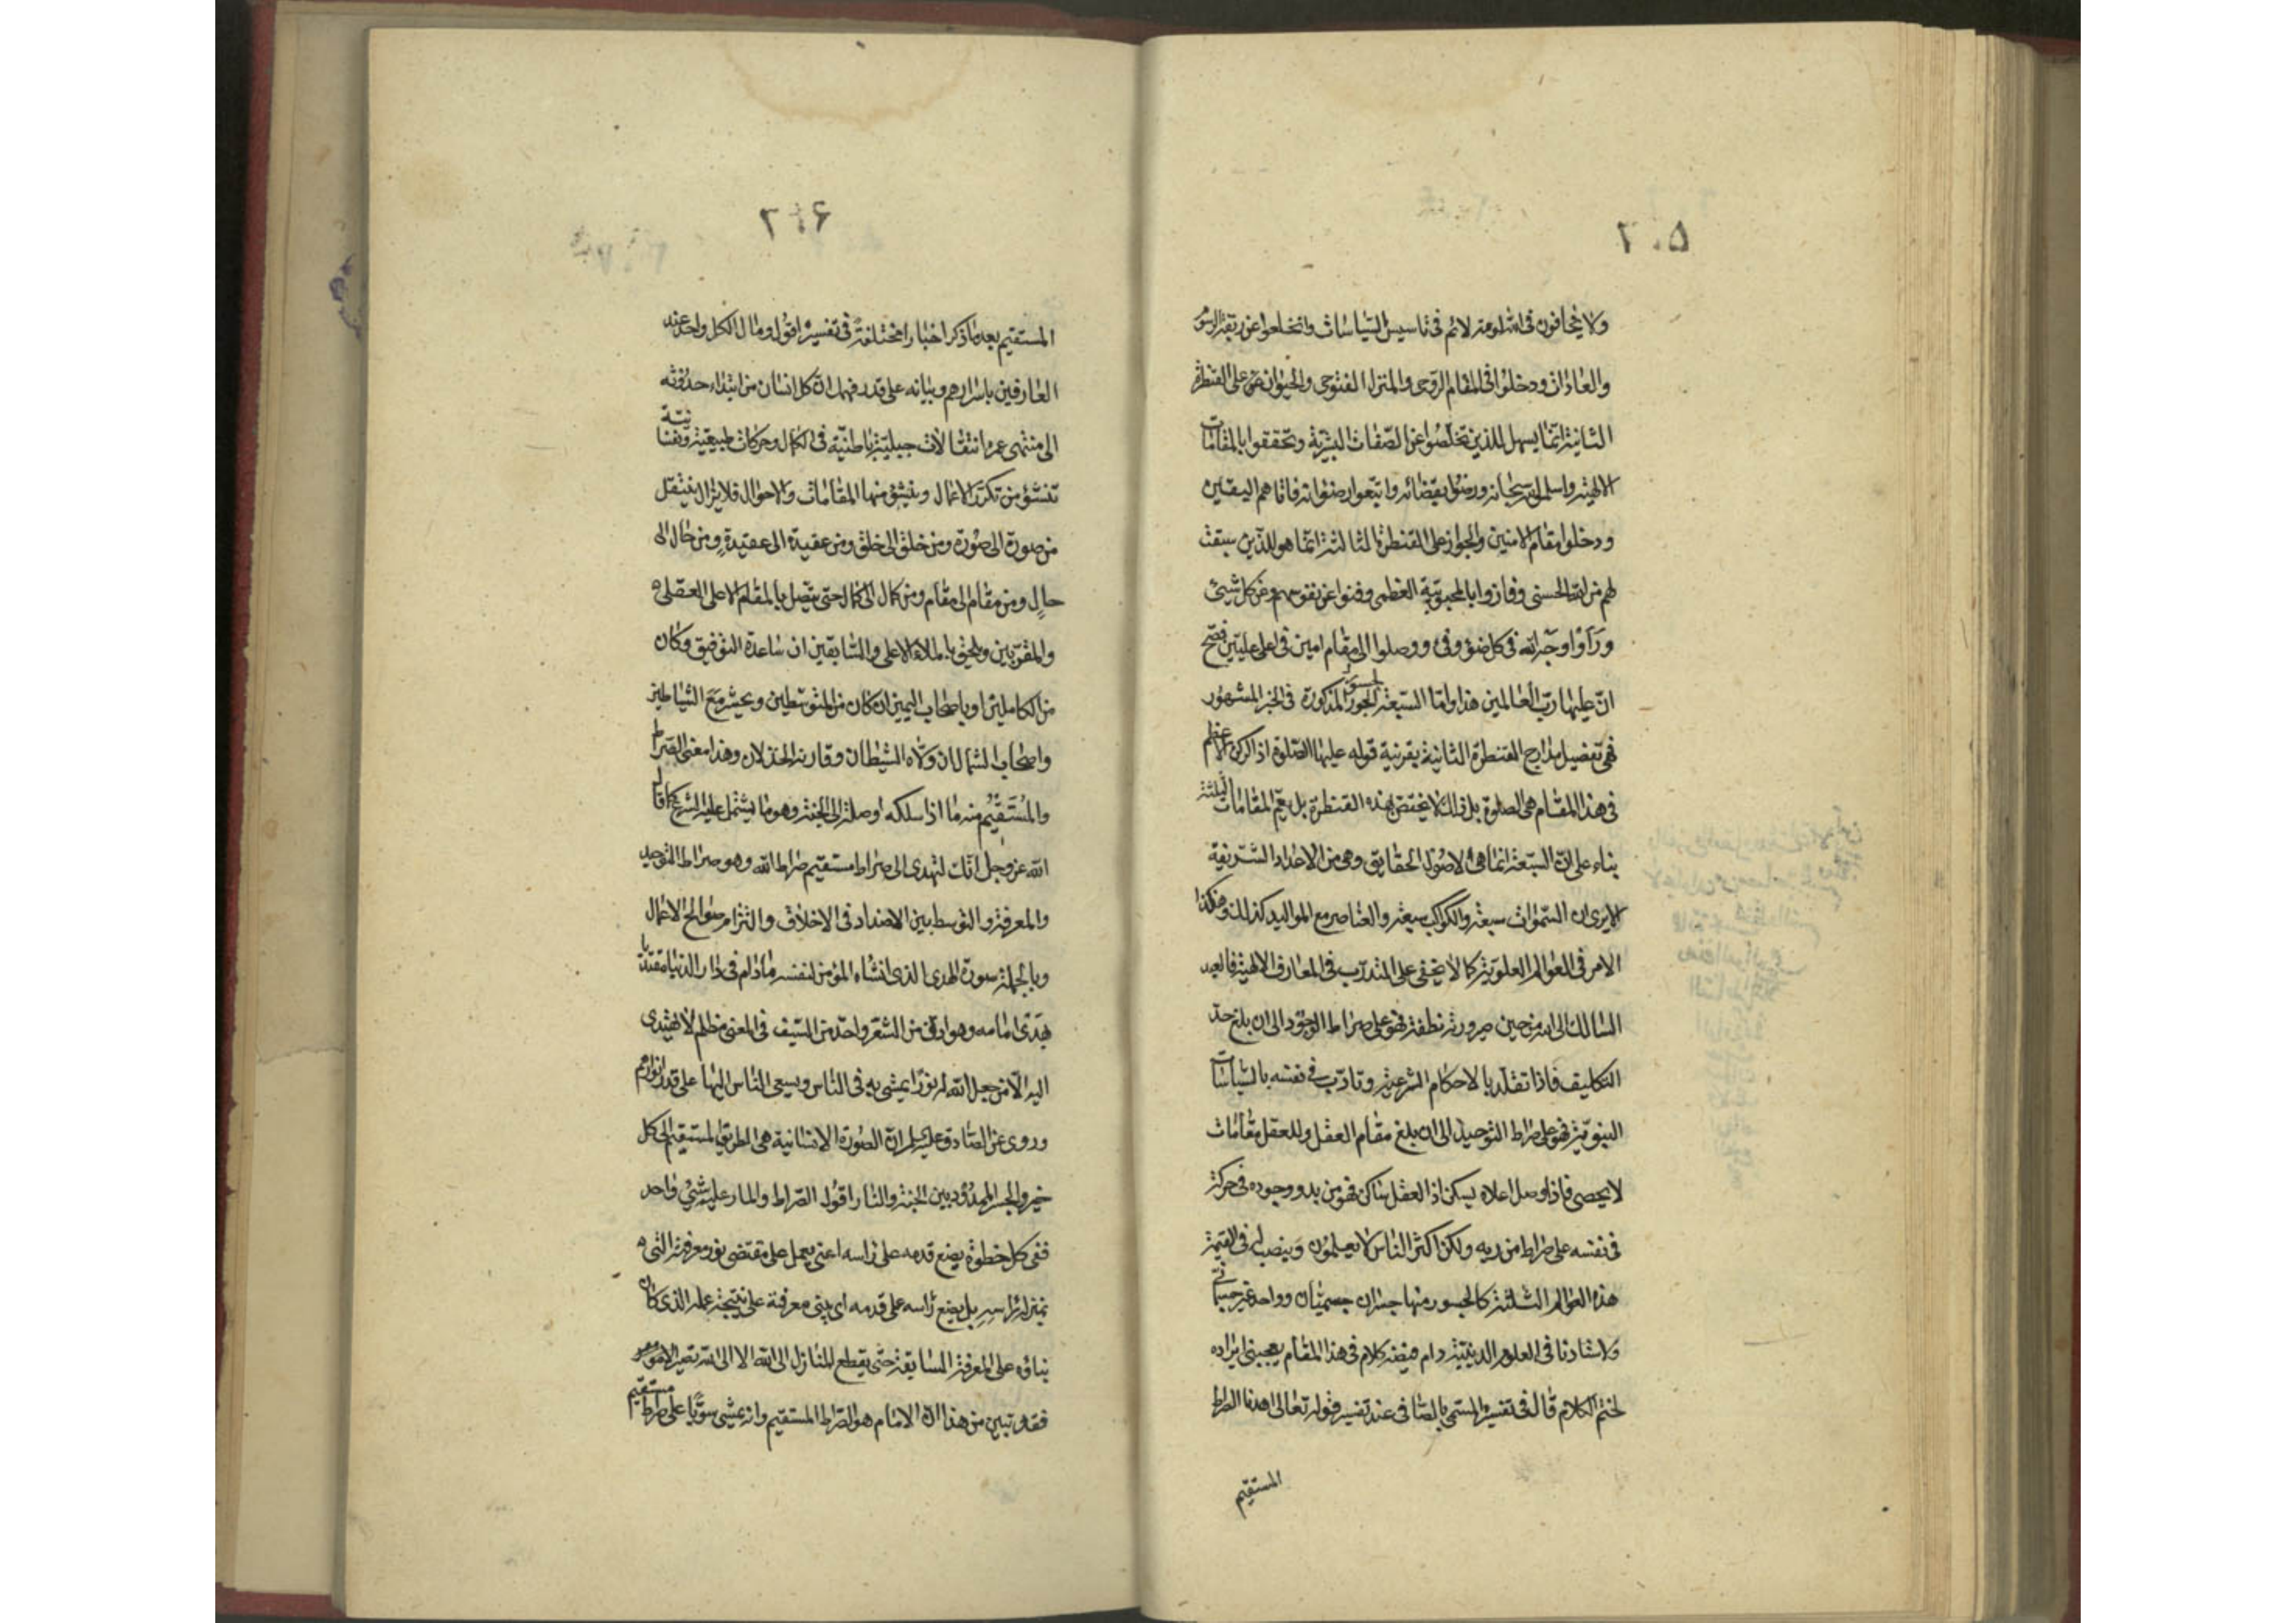 ٢٠٥
ولا يخافون في الله لومة لائم في تاسيس السّياسات وانخلعوا عن ربقة الرسوم
والعادات ودخلوا في المقام الرّوحي والمنزل الفتوحي والجواز على القنطرة
الثانية انّما يسهل للذين تخلّصوا عن الصّفات البشريّة وتحققوا بالمقامات
الالهيّة واسلموا لله سبحانه ورضوا بقضائه واتبعوا رضوانه فاتاهم اليقين
ودخلوا مقام الامنين والجواز على القنطرة الثالثة انّما هو للّذين سبقت
لهم من الله الحسنى وفازوا بالمحبوبيّة العظمى وفنوا عن نفوسهم وعن كل شيئ
ورَاَوْا وجه الله في كل ضوْء وفيْء ووصلوا الى مقام امين في اعلى عليّين فصحّ
انّ عليها ربّ العالمين هذا وامّا السّبعة الجسور المذكورة في الخبر المشهور
فهي تفصيل مدارج القنطرة الثانية بقرينة قوله عليها الصّلوة اذ الركن الاعظم
في هذا المقام هي الصلوة بل ذلك لا يختصّ بهذه القنطرة بل يعمّ المقامات الثلثة
بناء على انّ السّبعة انما هي لاصول الحقايق وهي من الاعداد الشّريفة
الا يرى ان السّموات سبعة والكواكب سبعة والعناصر مع المواليد كذلك وهكذا
الامر في العوالم العلويّة كما لا يخفى على المتدرّب في المعارف الالهيّة فالعبد
السالك الى الله من حين صيرورته نطفة فهو على صراط الوجود الى ان بلغ حدّ
التكليف فاذا تقلّد بالاحكام الشرعيّة وتادّب في نفسه بالسّياسات
النبويّة فهو على صراط التوحيد الى ان بلغ مقام العقل وللعقل مقامات
لا يحصى فاذا وصل اعلاه يسكن اذ العقل ساكن فهو من بدو وجوده في حركة
في نفسه على صراط من ربه ولكن اكثر الناس لا يعلمون وينصب له في القيمة
هذه العوالم الثّلثة كالجسور منها جسران جسميّان وواحد غير جسمانيّ
ولاستادنا في العلوم الدينيّة دام فيضه كلام في هذا المقام يعجبني ايراده
لختم الكلام قال في تفسيره المسمّى بالصّافي عند تفسير قوله تعالى اهدنا الصراط
المستقيم
٢٠٦
المستقيم بعد ما ذكر اخبارا مختلفة في تفسيره اقول ومال الكل واحد عند
العارفين باسرارهم وبيانه على قدر فهمك انّ كل انسان من ابتداء حدوثه
الى منتهى عمره انتقالات جبليّة باطنيّة في الكمال وحركات طبيعيّة ونفسانيّة
تنشؤ من تكرّر الاعمال وينشؤ منها المقامات والاحوال فلا يزال ينتقل
من صورة الى صورة ومن خلق الى خلق ومن عقيدة الى عقيدة ومن حال الى
حالٍ ومن مقام الى مقام ومن كمال الى كمال حتى يتّصل بالمقام الاعلى العقلي
والمقرّبين ويلحق بالملاء الاعلى والسّابقين ان ساعده التوفيق وكان
من الكاملين او باصحاب اليمين ان كان من المتوسّطين ويحشر مع الشياطين
واصحاب الشمال ان ولّاه الشيطان وقارنه الخذلان وهذا معنى الصّراط
والمُسْتَقيم منه ما اذا سلكه اوصله الى الجنّة وهو ما يشتمل عليه الشرع كما قال
الله عزّ وجل انّك لتهدى الى صراط مستقيم صراط الله وهو صراط التوحيد
والمعرفة والتوسط بين الاضداد في الاخلاق والتزام صوالح الاعمال
وبالجملة صورة الهدى الذى انشاه المؤمن لنفسه ما دام في دار الدنيا مقتديا
بهدى امامه وهو ادقّ من الشعر واحدّ من السّيف في المعنى مظلم لا يهتدى
اليه الّا من جعل الله له نورًا يمشى به في الناس ويسعى النّاس اليها على قدر انوارهم
وروى عن الصّادق عليه السلم انّ الصّورة الانسانية هي الطريق المستقيم الى كل
خير والجسر الممدود بين الجنّة والنار اقول الصّراط والمار عليه شيْئ واحد
ففي كل خطوة يضع قدمه على راسه اعنى يعمل على مقتضى نور معرفته التي
بمنزلة راسه بل يضع راسه على قدمه اى يبنى معرفته على نتيجة عمله الذى كان
بناؤه على المعرفة السّابقة حتّى يقطع المنازل الى الله الا الى الله تصير الامور
فقد تبين من هذا انّ الامام هو الصّراط المستقيم وانّه يمشى سويّا على صراط مستقيم